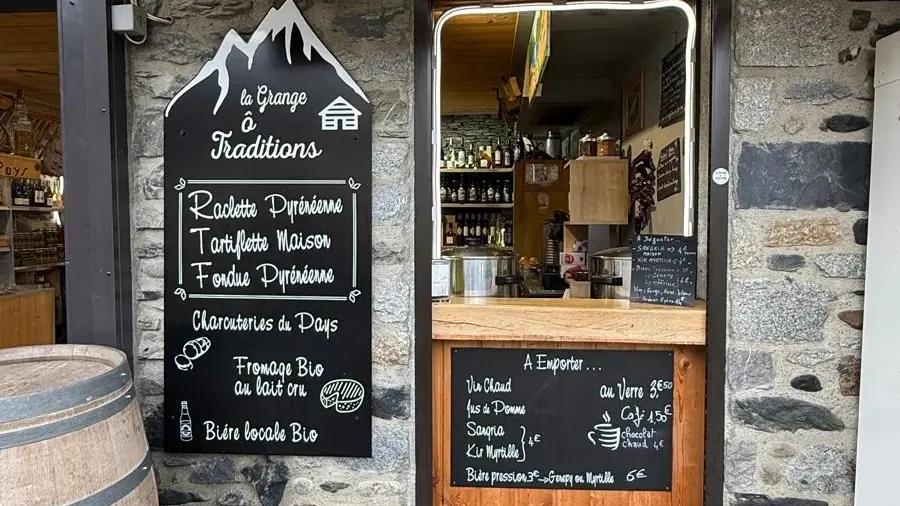 la Grange
ô
Traditions
Raclette Pyrénéenne
Tartiflette Maison
Fondue Pyrénéenne
Charcuteries du Pays
Fromage Bio
au lait cru
Biére locale Bio
A Déguster...
SANGRIA
MAISON
KIR MYRTILLE
A Emporter...
Vin Chaud
au Verre 3.€50
Jus de Pomme
Café 1,50€
Sangria
Kir Myrtille } 4€
chocolat
chaud 4€
Bière pression 3€ → Genepy ou Myrtille 6€